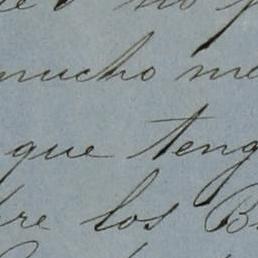 no
mucho me
que teng
re los B